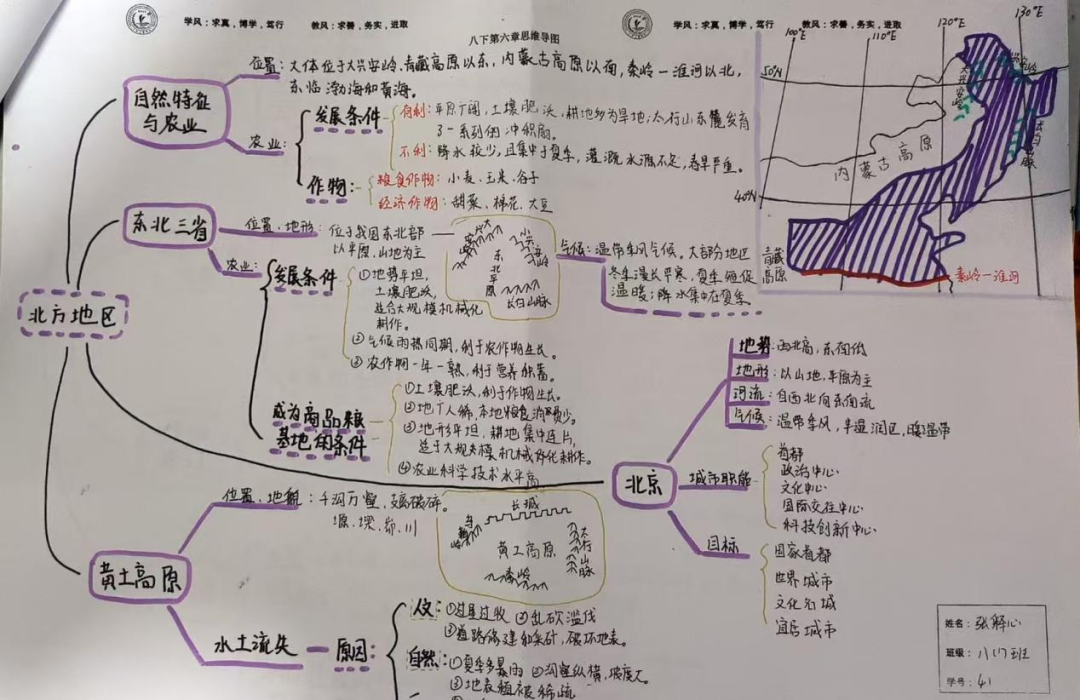 学风：求真，博学，笃行
教风：求善，务实，进取
学风：求真，博学，笃行
教风：求善，务实，进取
八下第六章思维导图
北方地区
自然特征
与农业
位置：大体位于大兴安岭、青藏高原以东，内蒙古高原以南，秦岭－淮河以北，
东临渤海和黄海。
农业：
发展条件
有利：平原广阔，土壤肥沃，耕地多为旱地；太行山东麓发育
了一系列的冲积扇。
不利：降水较少，且集中于夏季，灌溉水源不足，春旱严重。
作物：
粮食作物：小麦、玉米、谷子
经济作物：胡菜、棉花、大豆
东北三省
位置、地形：位于我国东北部
以平原、山地为主
东
北
平
原
长白山脉
气候：温带季风气候。大部分地区
冬季漫长严寒，夏季短促
温暖；降水集中在夏季。
农业：
发展条件
①地势平坦，
土壤肥沃，
适合大规模机械化
耕作。
②气候雨热同期，利于农作物生长。
③农作物一年一熟，利于营养积蓄。
成为商品粮
基地的条件
①土壤肥沃，利于作物生长。
②地广人稀，本地粮食消费少。
③地形平坦，耕地集中连片，
适于大规模机械化耕作。
④农业科学技术水平高
100°E
110°E
120°E
130°E
50°N
40°N
大兴安岭
长白山脉
内蒙古高原
青藏
高原
秦岭－淮河
北京
地势：西北高，东南低
地形：以山地，平原为主
河流：自西北向东南流
气候：温带季风，半湿润区，暖温带
城市职能
首都
政治中心
文化中心
国际交往中心
科技创新中心
目标
国家首都
世界城市
文化名城
宜居城市
黄土高原
位置、地貌：千沟万壑，支离破碎。
塬、墚、峁、川
长城
黄土高原
太行山脉
秦岭
水土流失
原因：
人文：①过垦过牧 ②乱砍滥伐
③道路修建和采矿，破坏地表。
自然：①夏季多暴雨 ②沟壑纵横，坡度大。
③地表植被稀疏
姓名：张解心
班级：八(1)班
学号：41